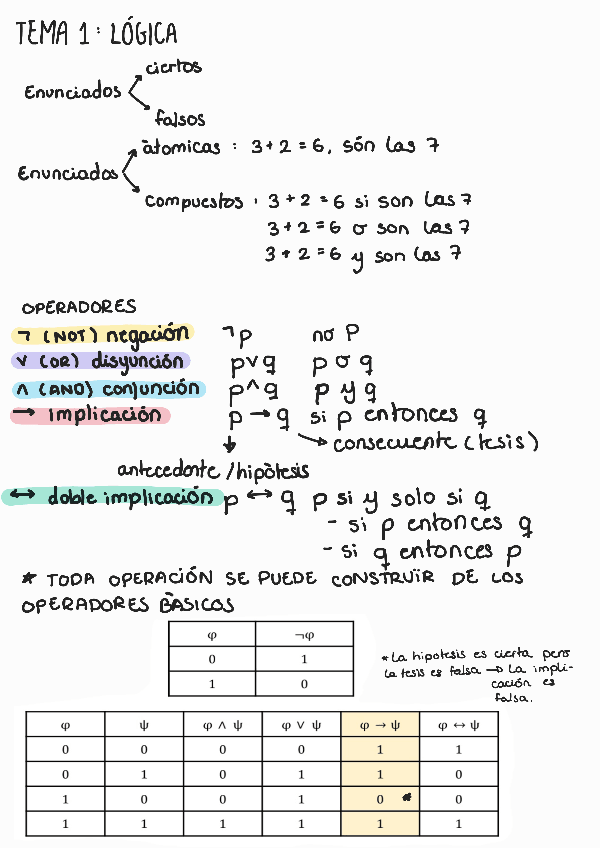 TEMA 1: LÓGICA
Enunciados
ciertos
falsos
Enunciados
àtomicas : 3 + 2 = 6, són las 7
compuestos : 3 + 2 = 6 si son las 7
3 + 2 = 6 o son las 7
3 + 2 = 6 y son las 7
OPERADORES
¬ (NOT) negación ¬p no p
∨ (OR) disyunción p∨q p o q
∧ (AND) conjunción p∧q p y q
→ implicación p → q si p entonces q
↓ → consecuente (tesis)
antecedente / hipòtesis
↔ doble implicación p ↔ q p si y solo si q
- si p entonces q
- si q entonces p
* TODA OPERACIÓN SE PUEDE CONSTRUÏR DE LOS
OPERADORES BÀSICOS
φ ¬φ
0 1
1 0
* La hipotesis es cierta pero
la tesis es falsa → La impli-
cación es
falsa.
φ ψ φ ∧ ψ φ ∨ ψ φ → ψ φ ↔ ψ
0 0 0 0 1 1
0 1 0 1 1 0
1 0 0 1 0 * 0
1 1 1 1 1 1